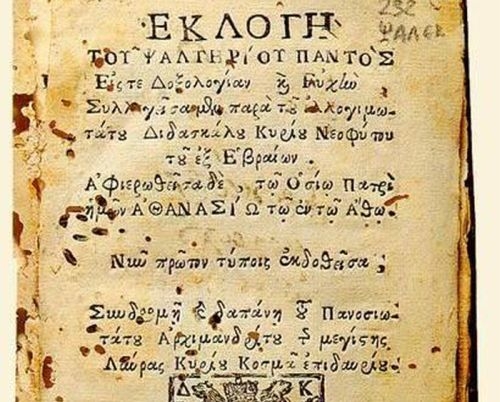 ΕΚΛΟΓΗ
232
ΨΑΛΕΚ
ΤΟΥ ΨΑΛΤΗΡΙΟΥ ΠΑΝΤΟΣ
Εἴς τε Δοξολογίαν ϗ Εὐχὴν
Συλλεγεῖσα μὲν παρὰ τοῦ ἐλλογιμω-
τάτου Διδασκάλου Κυρίου Νεοφύτου
τοῦ ἐξ Ἑβραίων.
Ἀφιερωθεῖσα δὲ, τῷ Ὁσίῳ Πατρὶ
ἡμῶν ΑΘΑΝΑΣΙΩ τῷ ἐν τῷ Ἄθῳ.
Νῦν πρῶτον τύποις ἐκδοθεῖσα;
Συνδρομῇ ϗ δαπάνῃ τοῦ Πανοσιω-
τάτου Ἀρχιμανδρίτου τῆς μεγίστης
Λαύρας Κυρίου Κοσμᾶ ἐπιδαυρίου.
Δ Κ